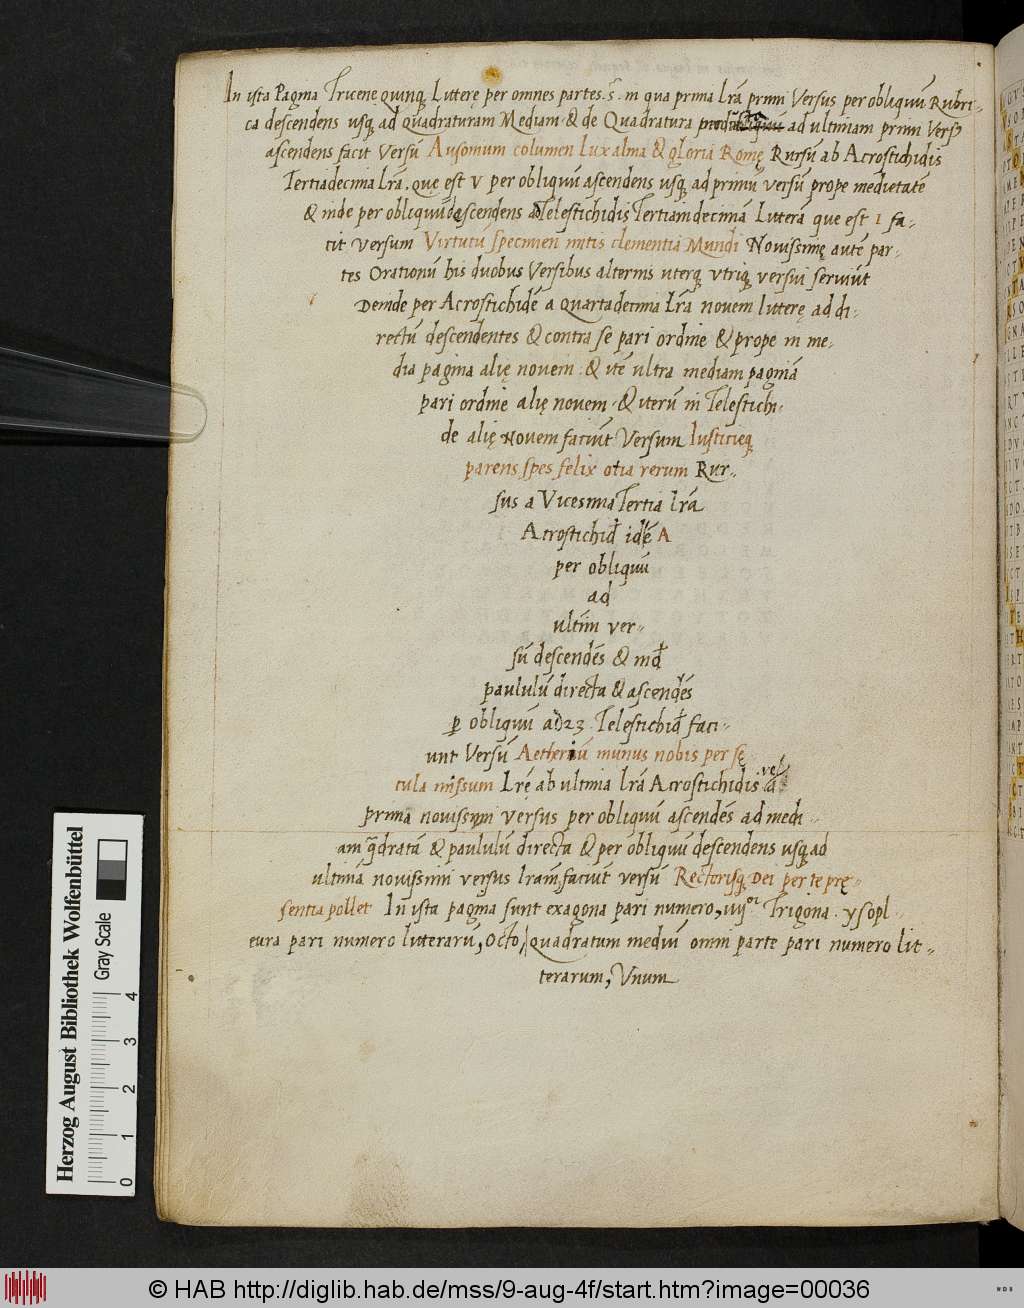 In ista Pagina Tricenę Quinq Litterę per omnes partes .s. in qua prima lrā primi Versus per obliquū Rubri-
ca descendens usq ad Quadraturam Mediam & de Quadratura ad ultimam primi Versꝰ
ascendens facit Versū Ausonium columen lux alma & gloria Romę Rursū ab Acrostichidis
Tertiadecima lrā. quę est V per obliquū ascendens usq ad primū versū prope medietatē
& inde per obliquū descendens ad Telestichidis Tertiamdecimā Litterā que est I fa-
cit versum Virtutū specimen mitis clementia Mundi Novissimę autē par-
tes Orationū his duobus Versibus alternis uterq utriq versui serviūt
Deinde per Acrostichidē a quartadecima lrā novem litterę ad di-
rectū descendentes & contra se pari ordine & prope in me-
dia pagina alię novem. & itē ultra mediam paginā
pari ordine alię novem. & iterū in Telestichi-
de alię Novem faciūt Versum Iusticięq
parens spes felix otia rerum Rur-
sus a Vicesima Tertia lrā
Acrostichid idē A
per obliquū
ad
ultim ver-
sū descendēs & ind
paululū directa & ascendēs
ꝑ obliquū ad 23. Telestichid faci-
unt Versū Aetheriū munus nobis per sę-
cula missum Lrę ab ultima lrā Acrostichidis .vel. a
prima novissimi versus per obliquū ascendēs ad medi-
am qdratā & paululū directa & per obliquū descendens usq ad
ultimā novissimi versus lram faciūt versū Rectorisq Dei per te prę-
sentia pollet In ista pagina sunt exagona pari numero, iiijor Trigona. ysopl-
eura pari numero litterarū, Octo, quadratum mediū omni parte pari numero lit-
terarum, Vnum
Herzog August Bibliothek Wolfenbüttel
Gray Scale
0 1 2 3 4
© HAB http://diglib.hab.de/mss/9-aug-4f/start.htm?image=00036